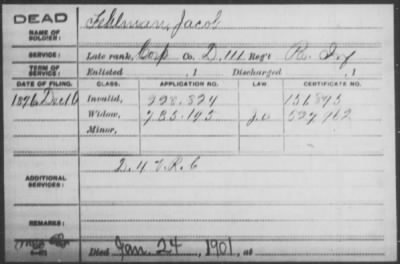 DEAD
NAME OF SOLDIER: Fehlman, Jacob
SERVICE: Late rank, Corp Co. D. 111 Reg't Pa. Inf
TERM OF SERVICE: Enlisted , 1 Discharged , 1
DATE OF FILING. CLASS. APPLICATION NO. LAW. CERTIFICATE NO.
1876 Dec 16 Invalid, 228.824 156893
Widow, 735.193 527762
Minor,
ADDITIONAL SERVICES: D. 4 V.R.C
REMARKS:
Died Jan. 24, 1901, at